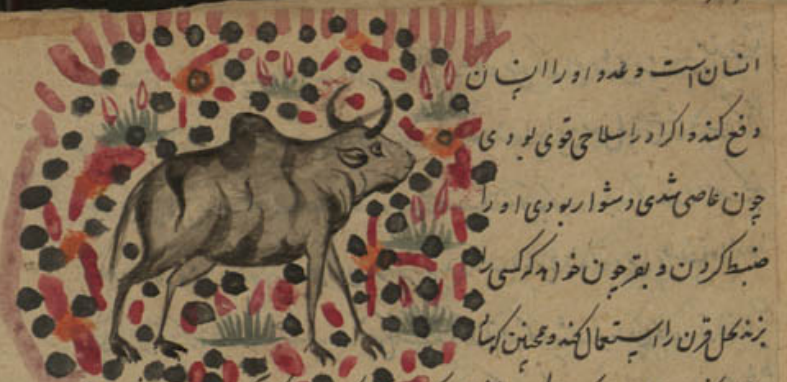 انسان است و عدو او را انسان
دفع کند و اگر او را سلاحی قوی بودی
چون عاصی شدی دشوار بودی او را
ضبط کردن و بقر چون خواهد که کسی را
بزند محل قرن را استعمال کند و همچنین